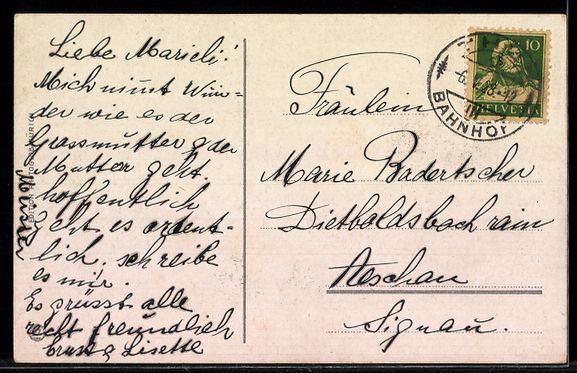 Liebe Marieli!
Mich nimt Wun-
der wie es der
Grossmutter & der
Mutter geht.
hoffentlich
geht es ordent-
lich. schreibe
es mir.
Es grüsst alle
recht freundlich
Lisette
Fräulein
Marie Badertscher
Dietboldsbachrain
Aeschau
Signau.
10
HELVETIA
BAHNHOF